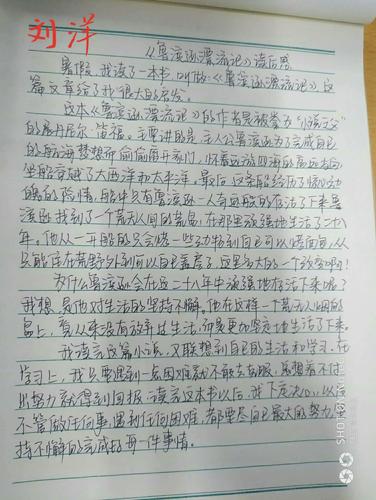 刘洋
《鲁滨逊漂流记》读后感
暑假,我读了一本书,叫做《鲁滨逊漂流记》,这
篇文章给了我很大的启发。
这本《鲁滨逊漂流记》的作者是被誉为"小说之父"
的展丹尼尔·笛福。主要讲的是,主人公鲁滨逊为了完成自己
的航海梦想而偷偷离开家门,怀着远游四海的高远志向,
坐船穿越了大西洋和太平洋。最后,这条船经历了惊心动
魄的险情,船中只有鲁滨逊一人奇迹般的存活了下来鲁
滨逊找到了一个荒无人烟的荒岛,在那里顽强地生活了二十八
年。他从一开始的只会烤一些动物到自己可以烤面包,从
只能住在荒野外到可以自己盖房子,这是多大的一个改变啊!
为什么鲁滨逊会在这二十八年中顽强地存活下来呢?
我想,是他对生活的坚持不懈。他在这样一个荒无人烟的
岛上,看从来没有放弃过生活,而是更加坚定地生活了下来。
我读完这篇小说,又联想到自己的生活和学习。在
学习上,我只要遇到一点困难就不敢去克服,总想着不付
出努力就得到回报,读完这本书以后,我下定决心,以后
不管做任何事,遇到任何困难,都要尽自己最大的努力,坚
持不懈的完成好每一件事情。
SHOT ON